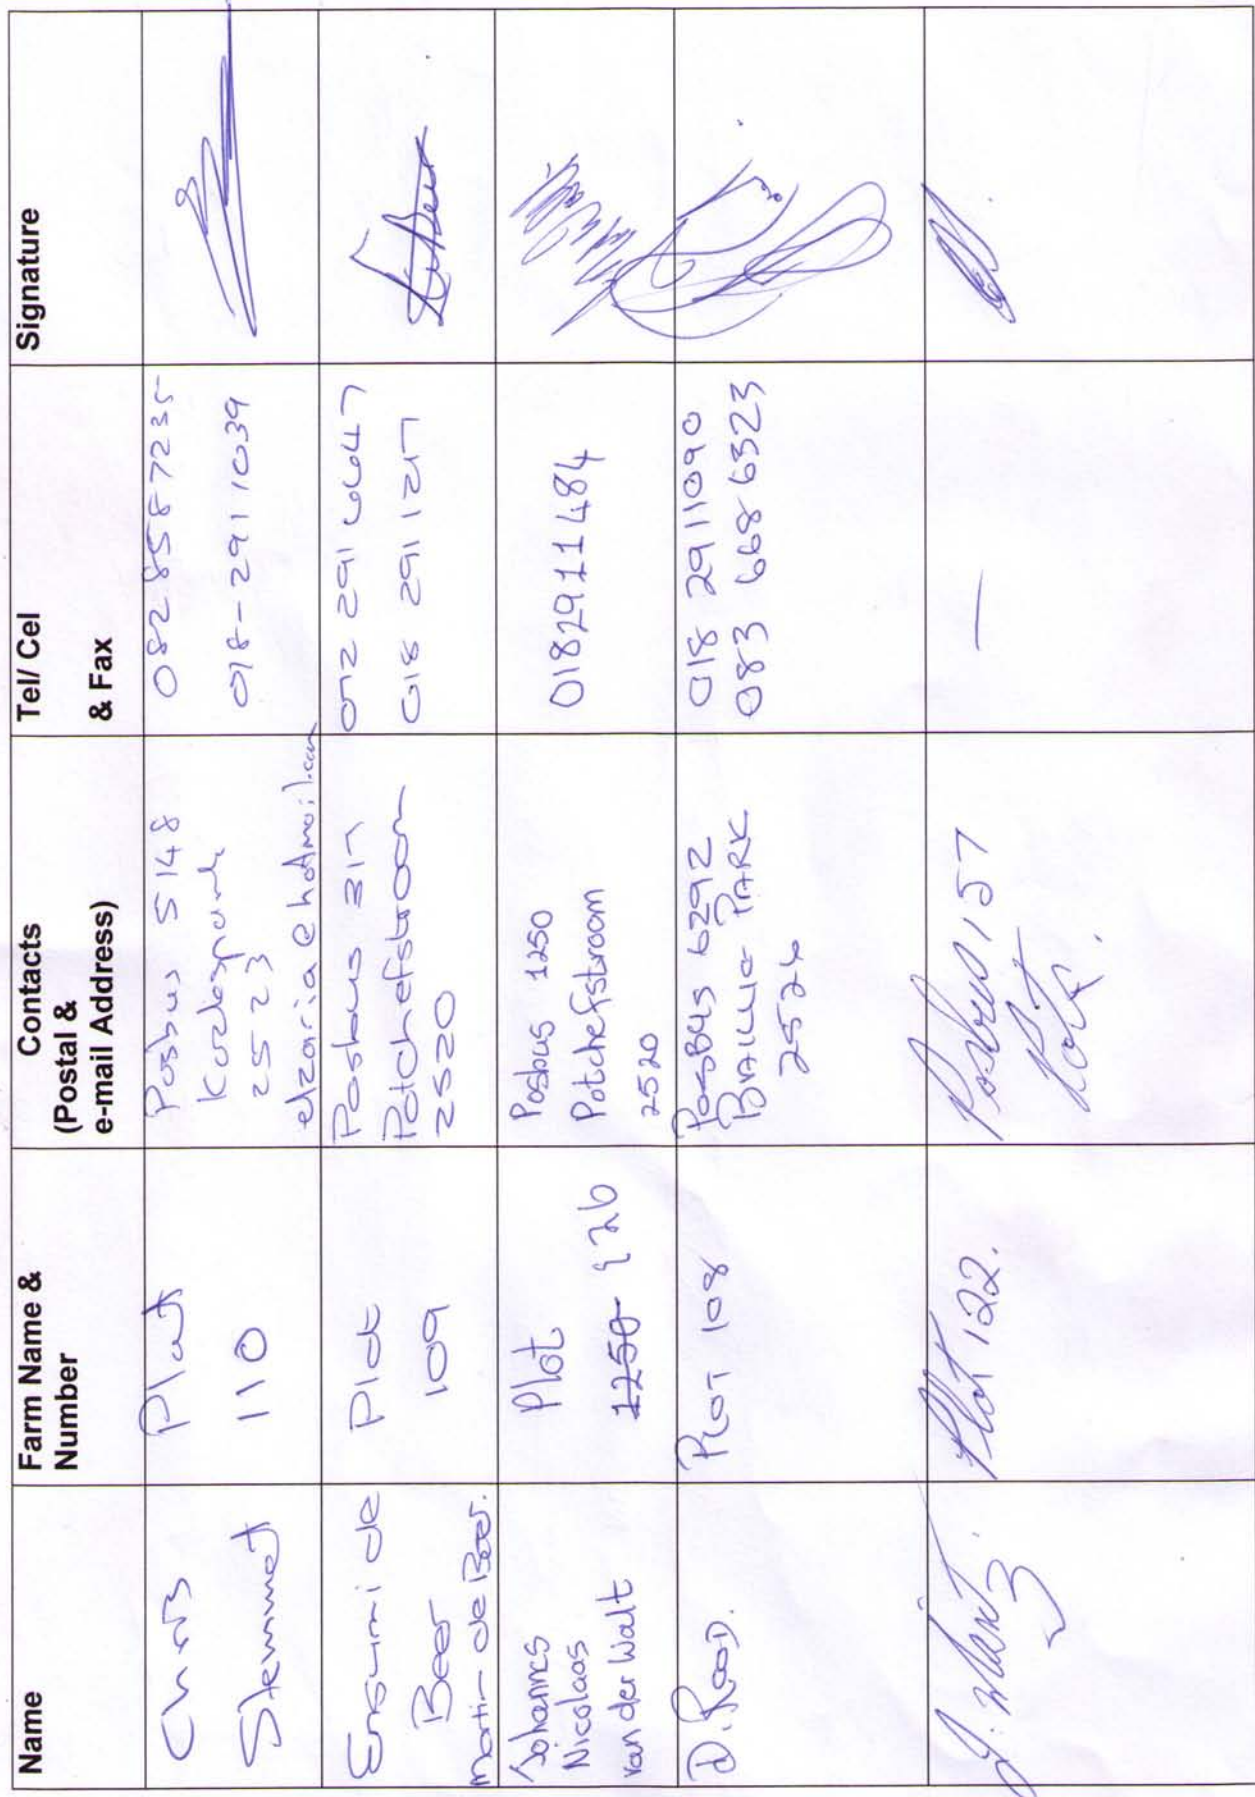 Name
Farm Name &
Number
Contacts
(Postal &
e-mail Address)
Tel/ Cel
& Fax
Signature
Chris
Stemmet
Plot
110
Posbus 5148
Kockspark
2523
elzaria@hotmail.com
0828587235
018-2911039
de
Beer
Martin de Beer.
Plot
109
Posbus 317
Potchefstroom
2520
072 291 6647
018 291 1217
Johannes
Nicolaas
van der Walt
Plot
1250 126
Posbus 1250
Potchefstroom
2520
0182911484
D. Rood.
PLOT 108
POSBUS 6292
BAILLIE PARK
2526
018 2911090
083 668 6323
J.
Plot 122.
Posbus 157
—